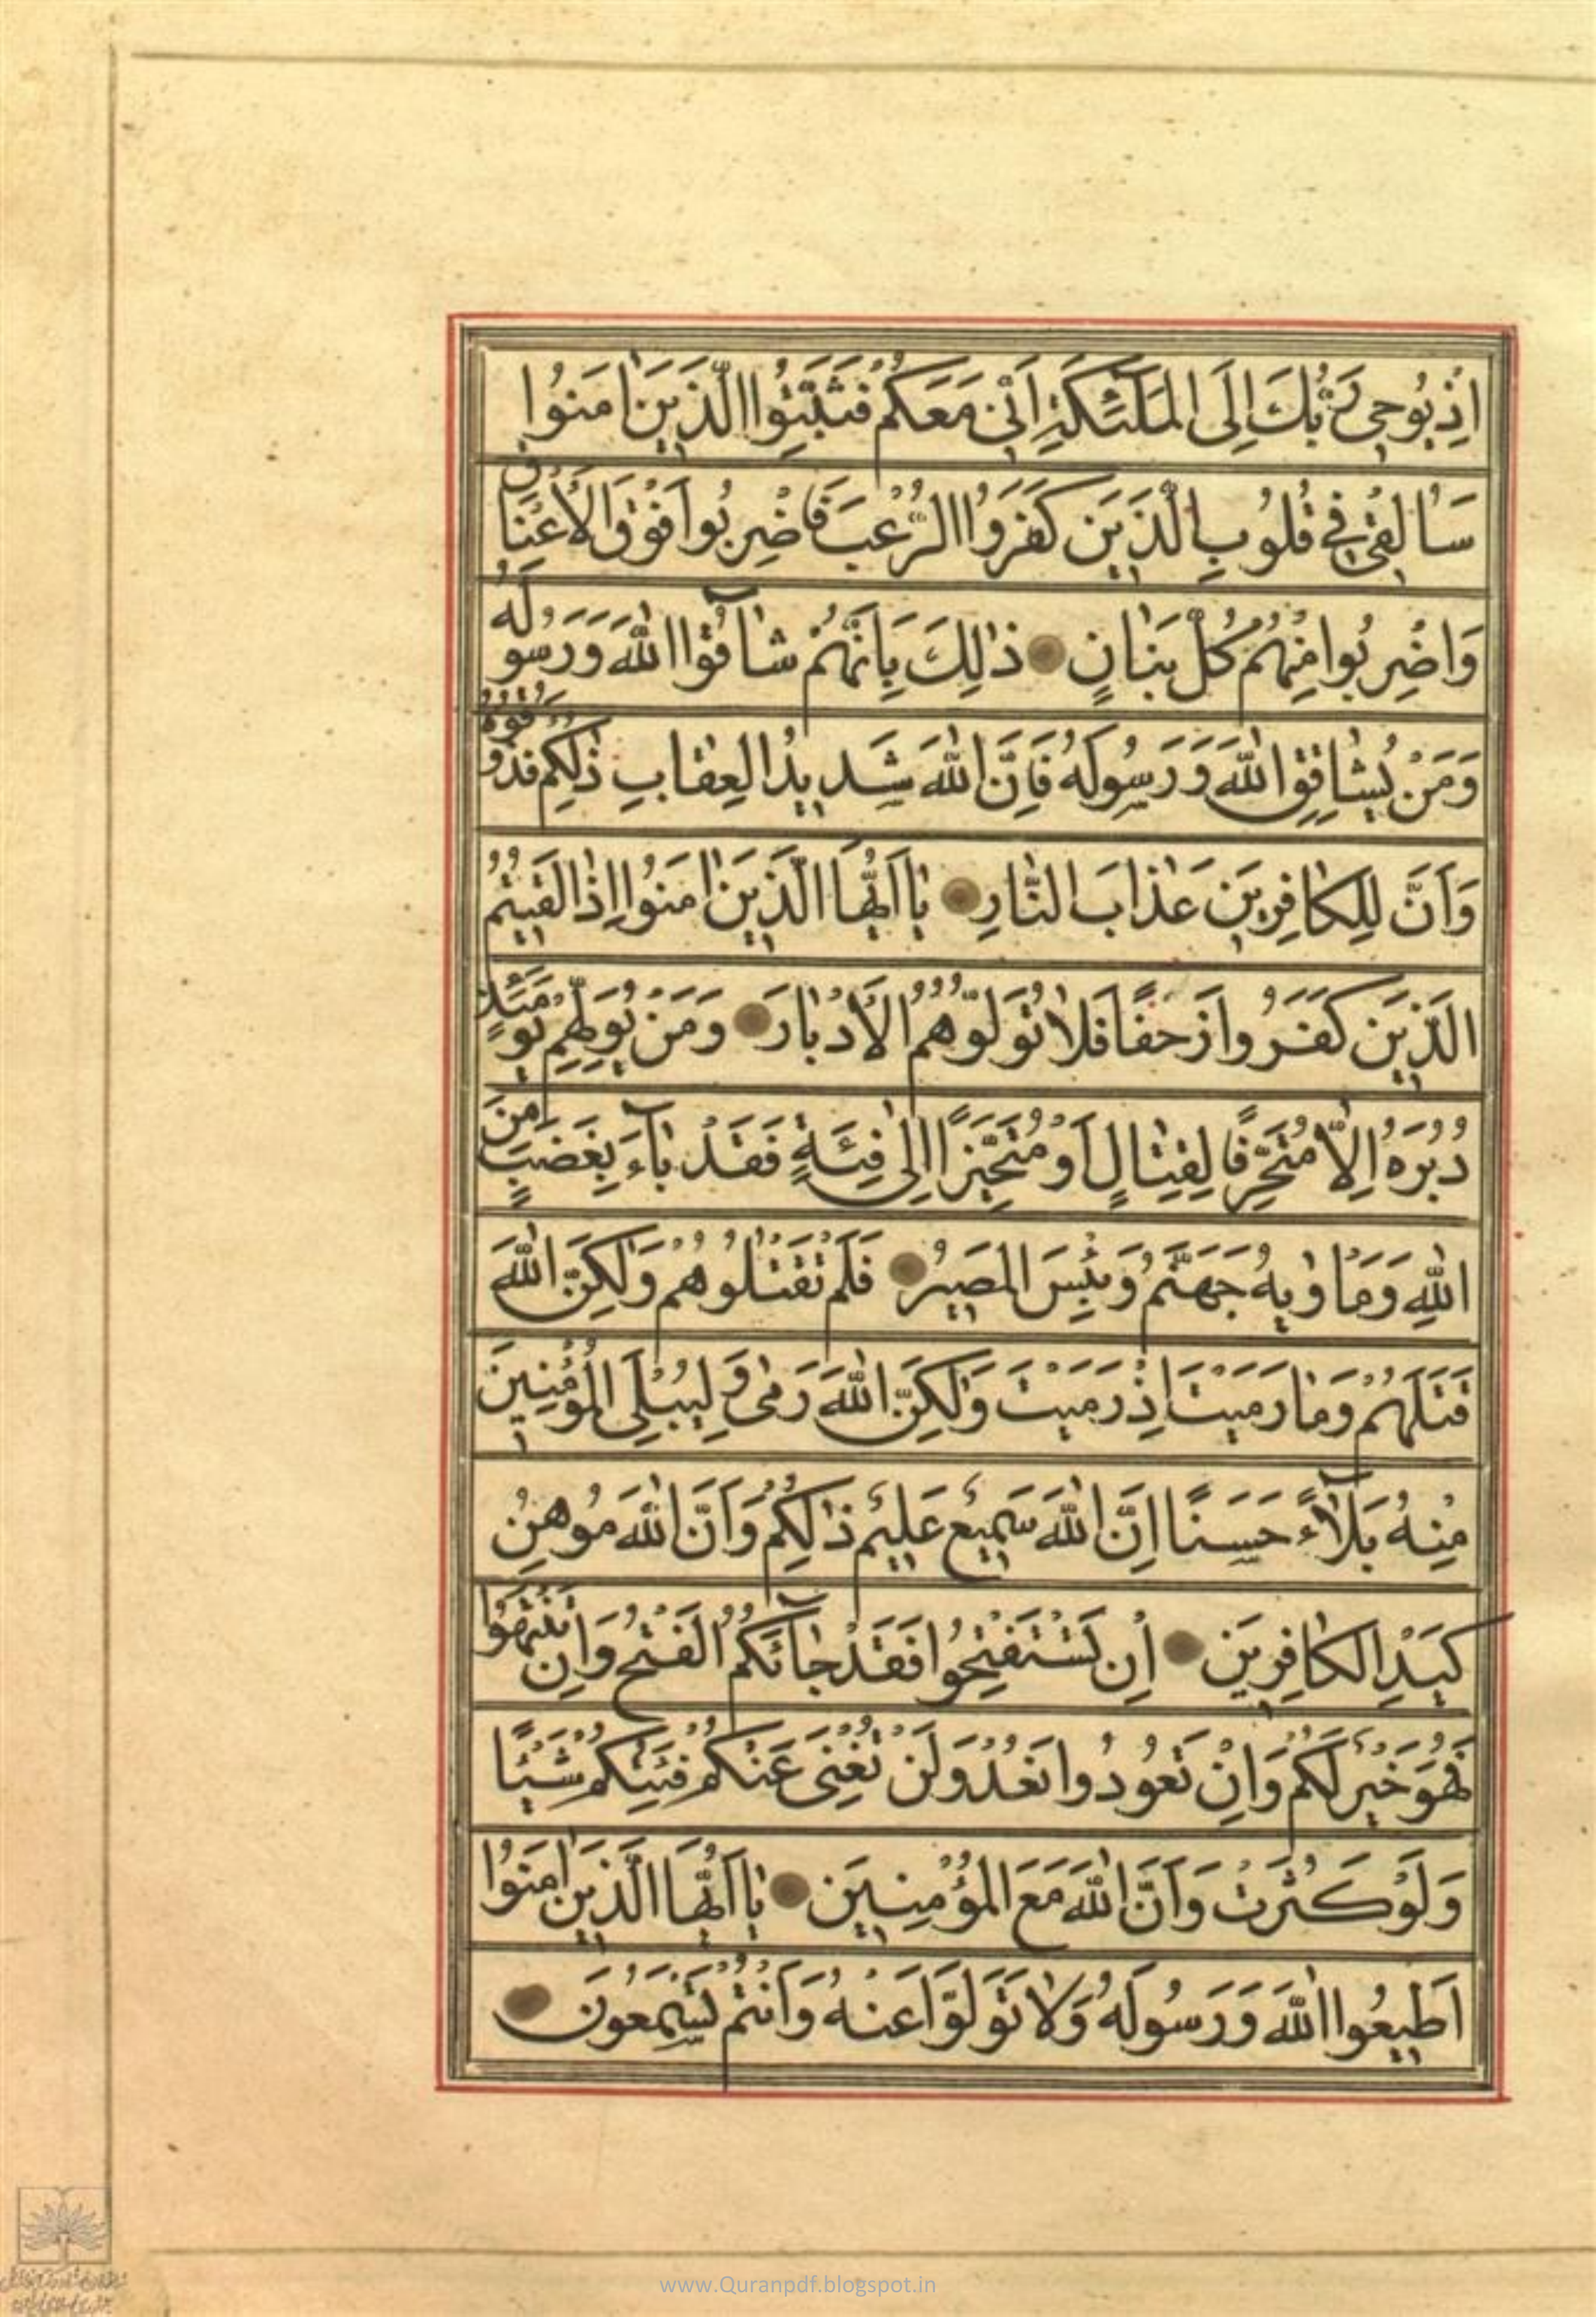 اِذْ يُوحِي رَبُّكَ اِلَى الْمَلٰٓئِكَةِ اَنِّي مَعَكُمْ فَثَبِّتُوا الَّذِينَ اٰمَنُوا
سَاُلْقِي فِي قُلُوبِ الَّذِينَ كَفَرُوا الرُّعْبَ فَاضْرِبُوا فَوْقَ الْاَعْنَاقِ
وَاضْرِبُوا مِنْهُمْ كُلَّ بَنَانٍ ذٰلِكَ بِاَنَّهُمْ شَاقُّوا اللّٰهَ وَرَسُولَهُ
وَمَنْ يُشَاقِقِ اللّٰهَ وَرَسُولَهُ فَاِنَّ اللّٰهَ شَدِيدُ الْعِقَابِ ذٰلِكُمْ فَذُوقُوهُ
وَاَنَّ لِلْكَافِرِينَ عَذَابَ النَّارِ يَا اَيُّهَا الَّذِينَ اٰمَنُوا اِذَا لَقِيتُمُ
الَّذِينَ كَفَرُوا زَحْفًا فَلَا تُوَلُّوهُمُ الْاَدْبَارَ وَمَنْ يُوَلِّهِمْ يَوْمَئِذٍ
دُبُرَهُ اِلَّا مُتَحَرِّفًا لِقِتَالٍ اَوْ مُتَحَيِّزًا اِلٰى فِئَةٍ فَقَدْ بَاءَ بِغَضَبٍ مِنَ
اللّٰهِ وَمَاْوٰيهُ جَهَنَّمُ وَبِئْسَ الْمَصِيرُ فَلَمْ تَقْتُلُوهُمْ وَلٰكِنَّ اللّٰهَ
قَتَلَهُمْ وَمَا رَمَيْتَ اِذْ رَمَيْتَ وَلٰكِنَّ اللّٰهَ رَمٰى وَلِيُبْلِيَ الْمُؤْمِنِينَ
مِنْهُ بَلَاءً حَسَنًا اِنَّ اللّٰهَ سَمِيعٌ عَلِيمٌ ذٰلِكُمْ وَاَنَّ اللّٰهَ مُوهِنُ
كَيْدِ الْكَافِرِينَ اِنْ تَسْتَفْتِحُوا فَقَدْ جَائَكُمُ الْفَتْحُ وَاِنْ تَنْتَهُوا
فَهُوَ خَيْرٌ لَكُمْ وَاِنْ تَعُودُوا نَعُدْ وَلَنْ تُغْنِيَ عَنْكُمْ فِئَتُكُمْ شَيْئًا
وَلَوْ كَثُرَتْ وَاَنَّ اللّٰهَ مَعَ الْمُؤْمِنِينَ يَا اَيُّهَا الَّذِينَ اٰمَنُوا
اَطِيعُوا اللّٰهَ وَرَسُولَهُ وَلَا تَوَلَّوْا عَنْهُ وَاَنْتُمْ تَسْمَعُونَ
www.Quranpdf.blogspot.in